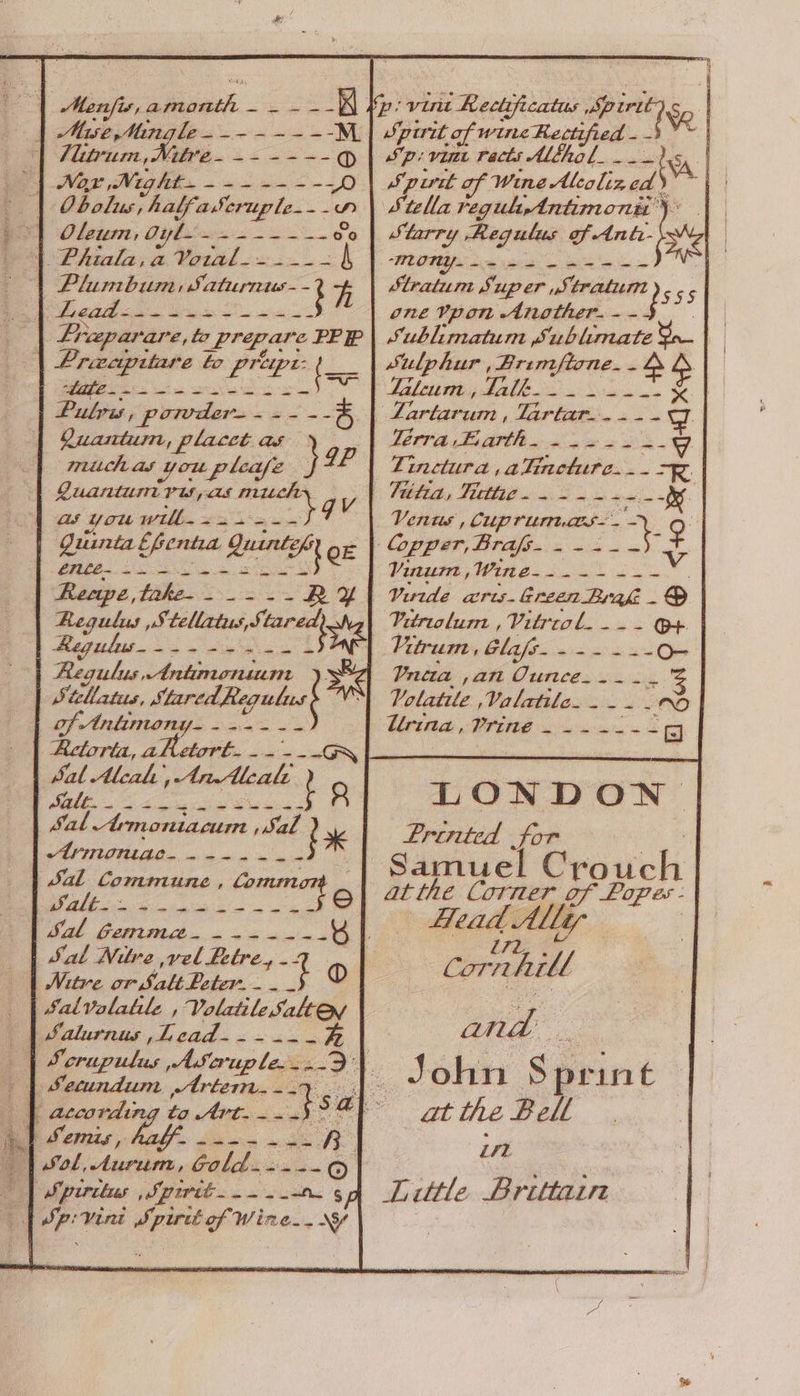 Mensis, a month - - - - -
Mise, Mingle - - - - - - - -M
Nitrum, Nitre - - - - - - -
Nox, Night - - - - - - - - -
Obolus, half a Scruple - - -
Oleum, Oyl - - - - - - - -
Phiala, a Voial - - - - - -
Plumbum, Saturnus - -
Lead - - - - - - - - - - - ♄
Præparare, to prepare PPP
Præcipitare to præpi:
-tate - - - - - - - - - - -
Pulvis, powder - - - - - -
Quantum, placet as
much as you please } qp
Quantum vis, as much
as you will - - - - - - } qv
Quinta Essentia Quintess
ence - - - - - - - - - - QE
Recipe, take - - - - - - ℞
Regulus, Stellatus, Stared
Regulus - - - - - - - - -
Regulus, Antimonium
Stellatus, Stared Regulus
of Antimony - - - - - -
Retorta, a Retort - - - - -
Sal Alcali, An Alcali
Salt - - - - - - - - - - -
Sal Armoniacum, Sal
Armoniac - - - - - - - - ✳
Sal Commune, Common
Salt - - - - - - - - - - -
Sal Gemmæ - - - - - - -
Sal Nitre, vel Petre, - -
Nitre or Salt Peter - - -
Sal volatile, Volatile Salt
Saturnus, Lead - - - - - ♄
Scrupulus, A Scruple - - - ℈
Secundum, Artem - - -
according to Art - - - - } Sa
Semis, half - - - - - - - ß
Sol, Aurum, Gold - - - - - ☉
Spiritus, Spirit - - - - - sp
Sp: Vini Spirit of Wine - -
Sp: vini Rectificatus Spirit
Spirit of wine Rectified - -
Sp: vini racts Alchol - - - -
Spirit of Wine Alcolized
Stella reguli, Antimonii
Starry Regulus of Anti-
mony - - - - - - - - - -
Stratum Super, Stratum
one Vpon Another - - - } sss
Sublimatum Sublimate
Sulphur, Brimstone - -
Talcum, Talk - - - - - - -
Tartarum, Tartar - - - - -
Terra, Earth - - - - - - -
Tinctura, a Tincture - - -
Tutia, Tuttie - - - - - - -
Venus, Cuprum, æs - - -
Copper, Brass - - - - - } ♀
Vinum, Wine - - - - - - - V
Viride æris. Green Brass -
Vitriolum, Vitriol - - - -
Vitrum, Glass - - - - - - -
Vncia, an Ounce - - - - - ℥
Volatile, Valatile - - - -
Urina, Vrine - - - - - - -
LONDON
Printed for
Samuel Crouch
at the Corner of Popes-
Head Ally
in
Cornhill
and
John Sprint
at the Bell
in
Little Brittain